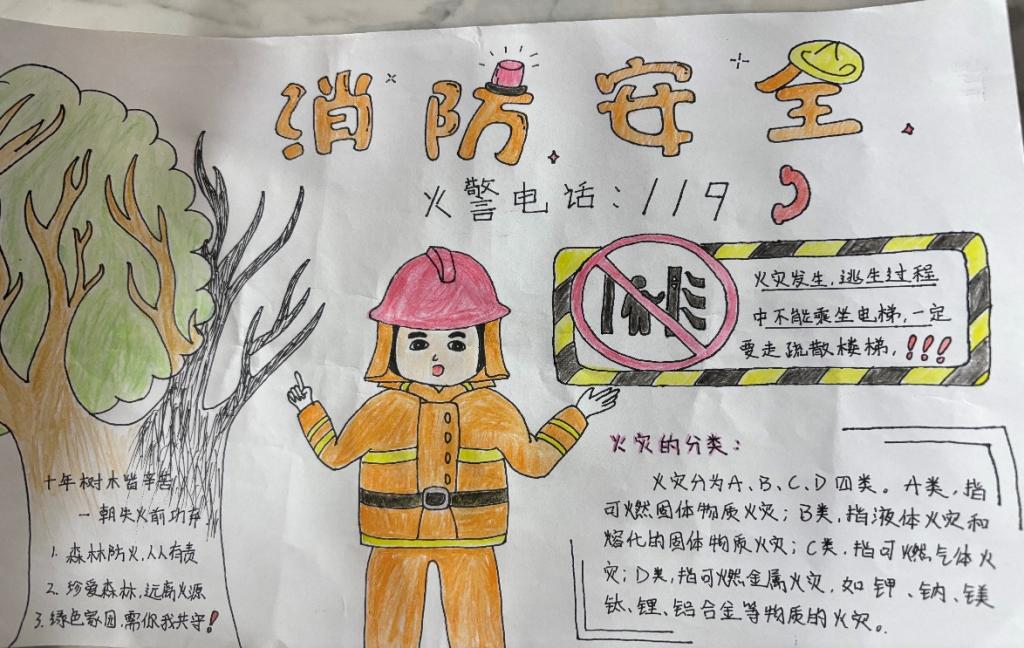 消防安全
火警电话：119
火灾发生，逃生过程
中不能乘坐电梯，一定
要走疏散楼梯，!!!
火灾的分类：
火灾分为A、B、C、D四类。A类，指
可燃固体物质火灾；B类，指液体火灾和
熔化的固体物质火灾；C类，指可燃气体火
灾；D类，指可燃金属火灾，如钾、钠、镁
钛、锂、铝合金等物质的火灾。
十年树木皆辛苦，
一朝失火前功弃
1. 森林防火，人人有责
2. 珍爱森林，远离火源
3. 绿色家园，需你我共守！